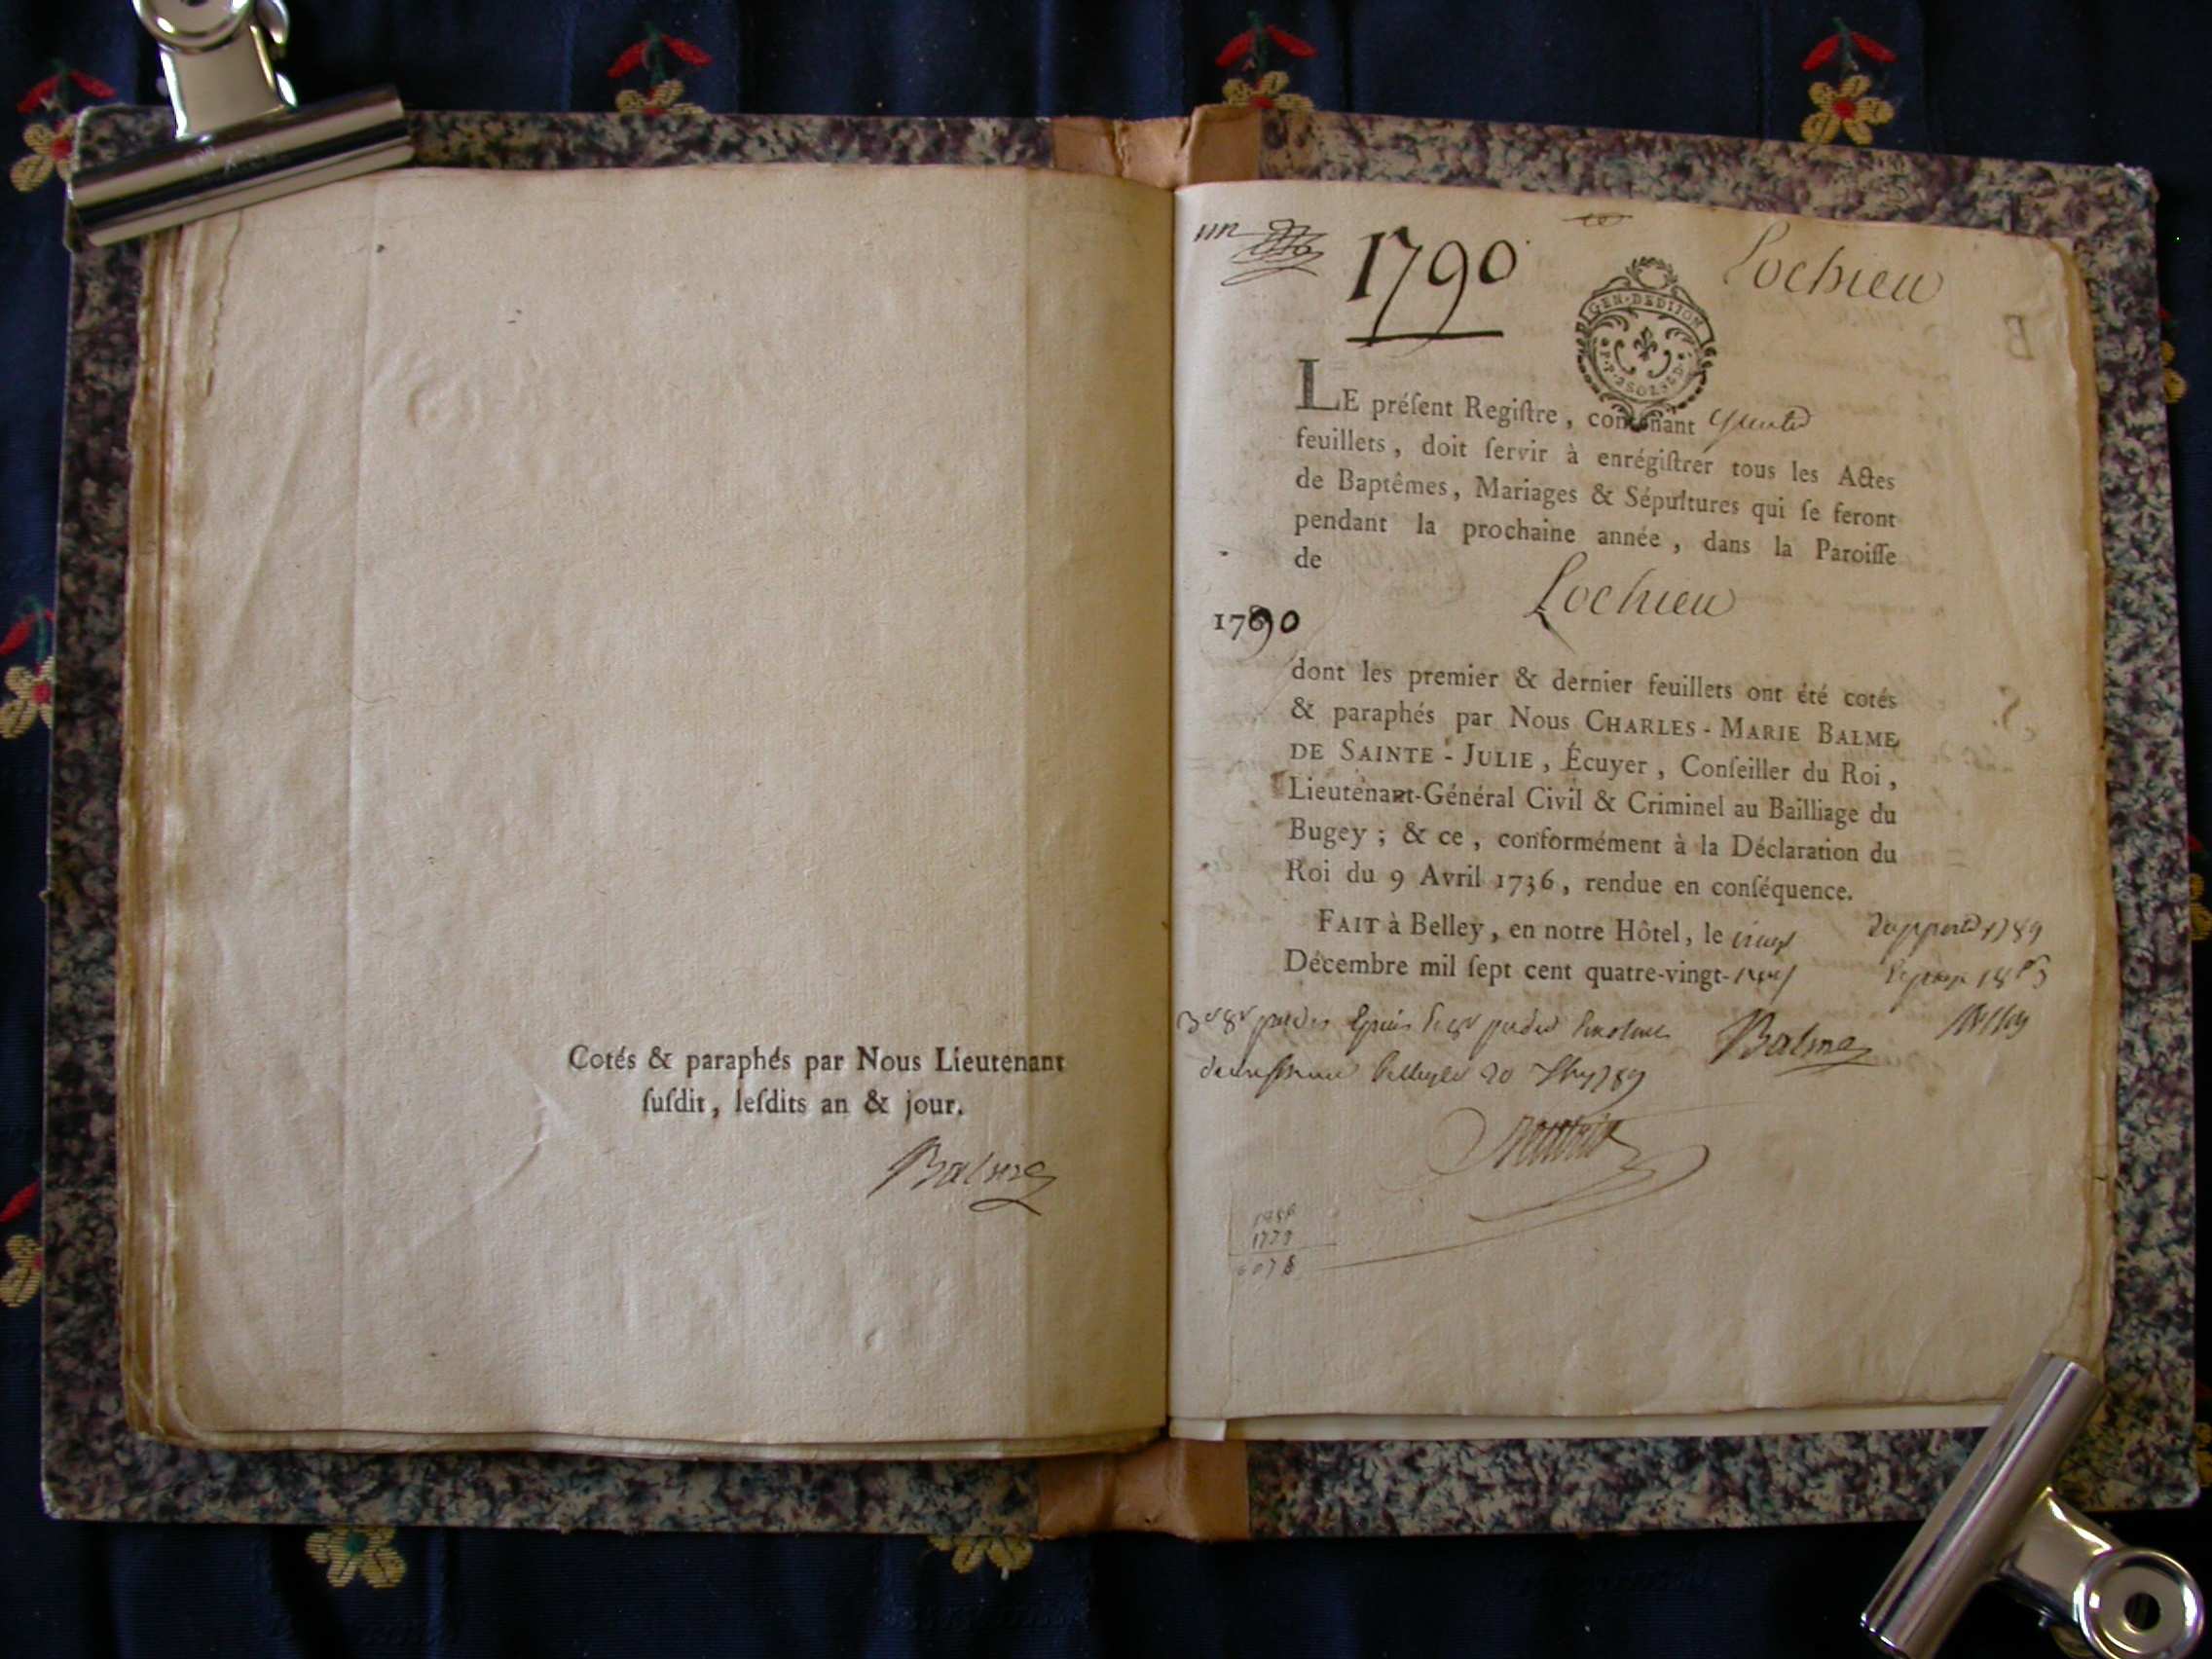 Cotés & paraphés par Nous Lieutenant
ſuſdit, leſdits an & jour.
Balme
un
1790
Lochieu
GEN·DEDIJON
LE préſent Regiſtre, contenant
feuillets, doit ſervir à enrégiſtrer tous les Actes
de Baptêmes, Mariages & Sépultures qui ſe feront
pendant la prochaine année, dans la Paroiſſe
de
Lochieu
1790
dont les premier & dernier feuillets ont été cotés
& paraphés par Nous CHARLES-MARIE BALME
DE SAINTE-JULIE, Écuyer, Conſeiller du Roi,
Lieutenant-Général Civil & Criminel au Bailliage du
Bugey; & ce, conformément à la Déclaration du
Roi du 9 Avril 1736, rendue en conſéquence.
FAIT à Belley, en notre Hôtel, le vingt
Décembre mil ſept cent quatre-vingt-neuf
Balme